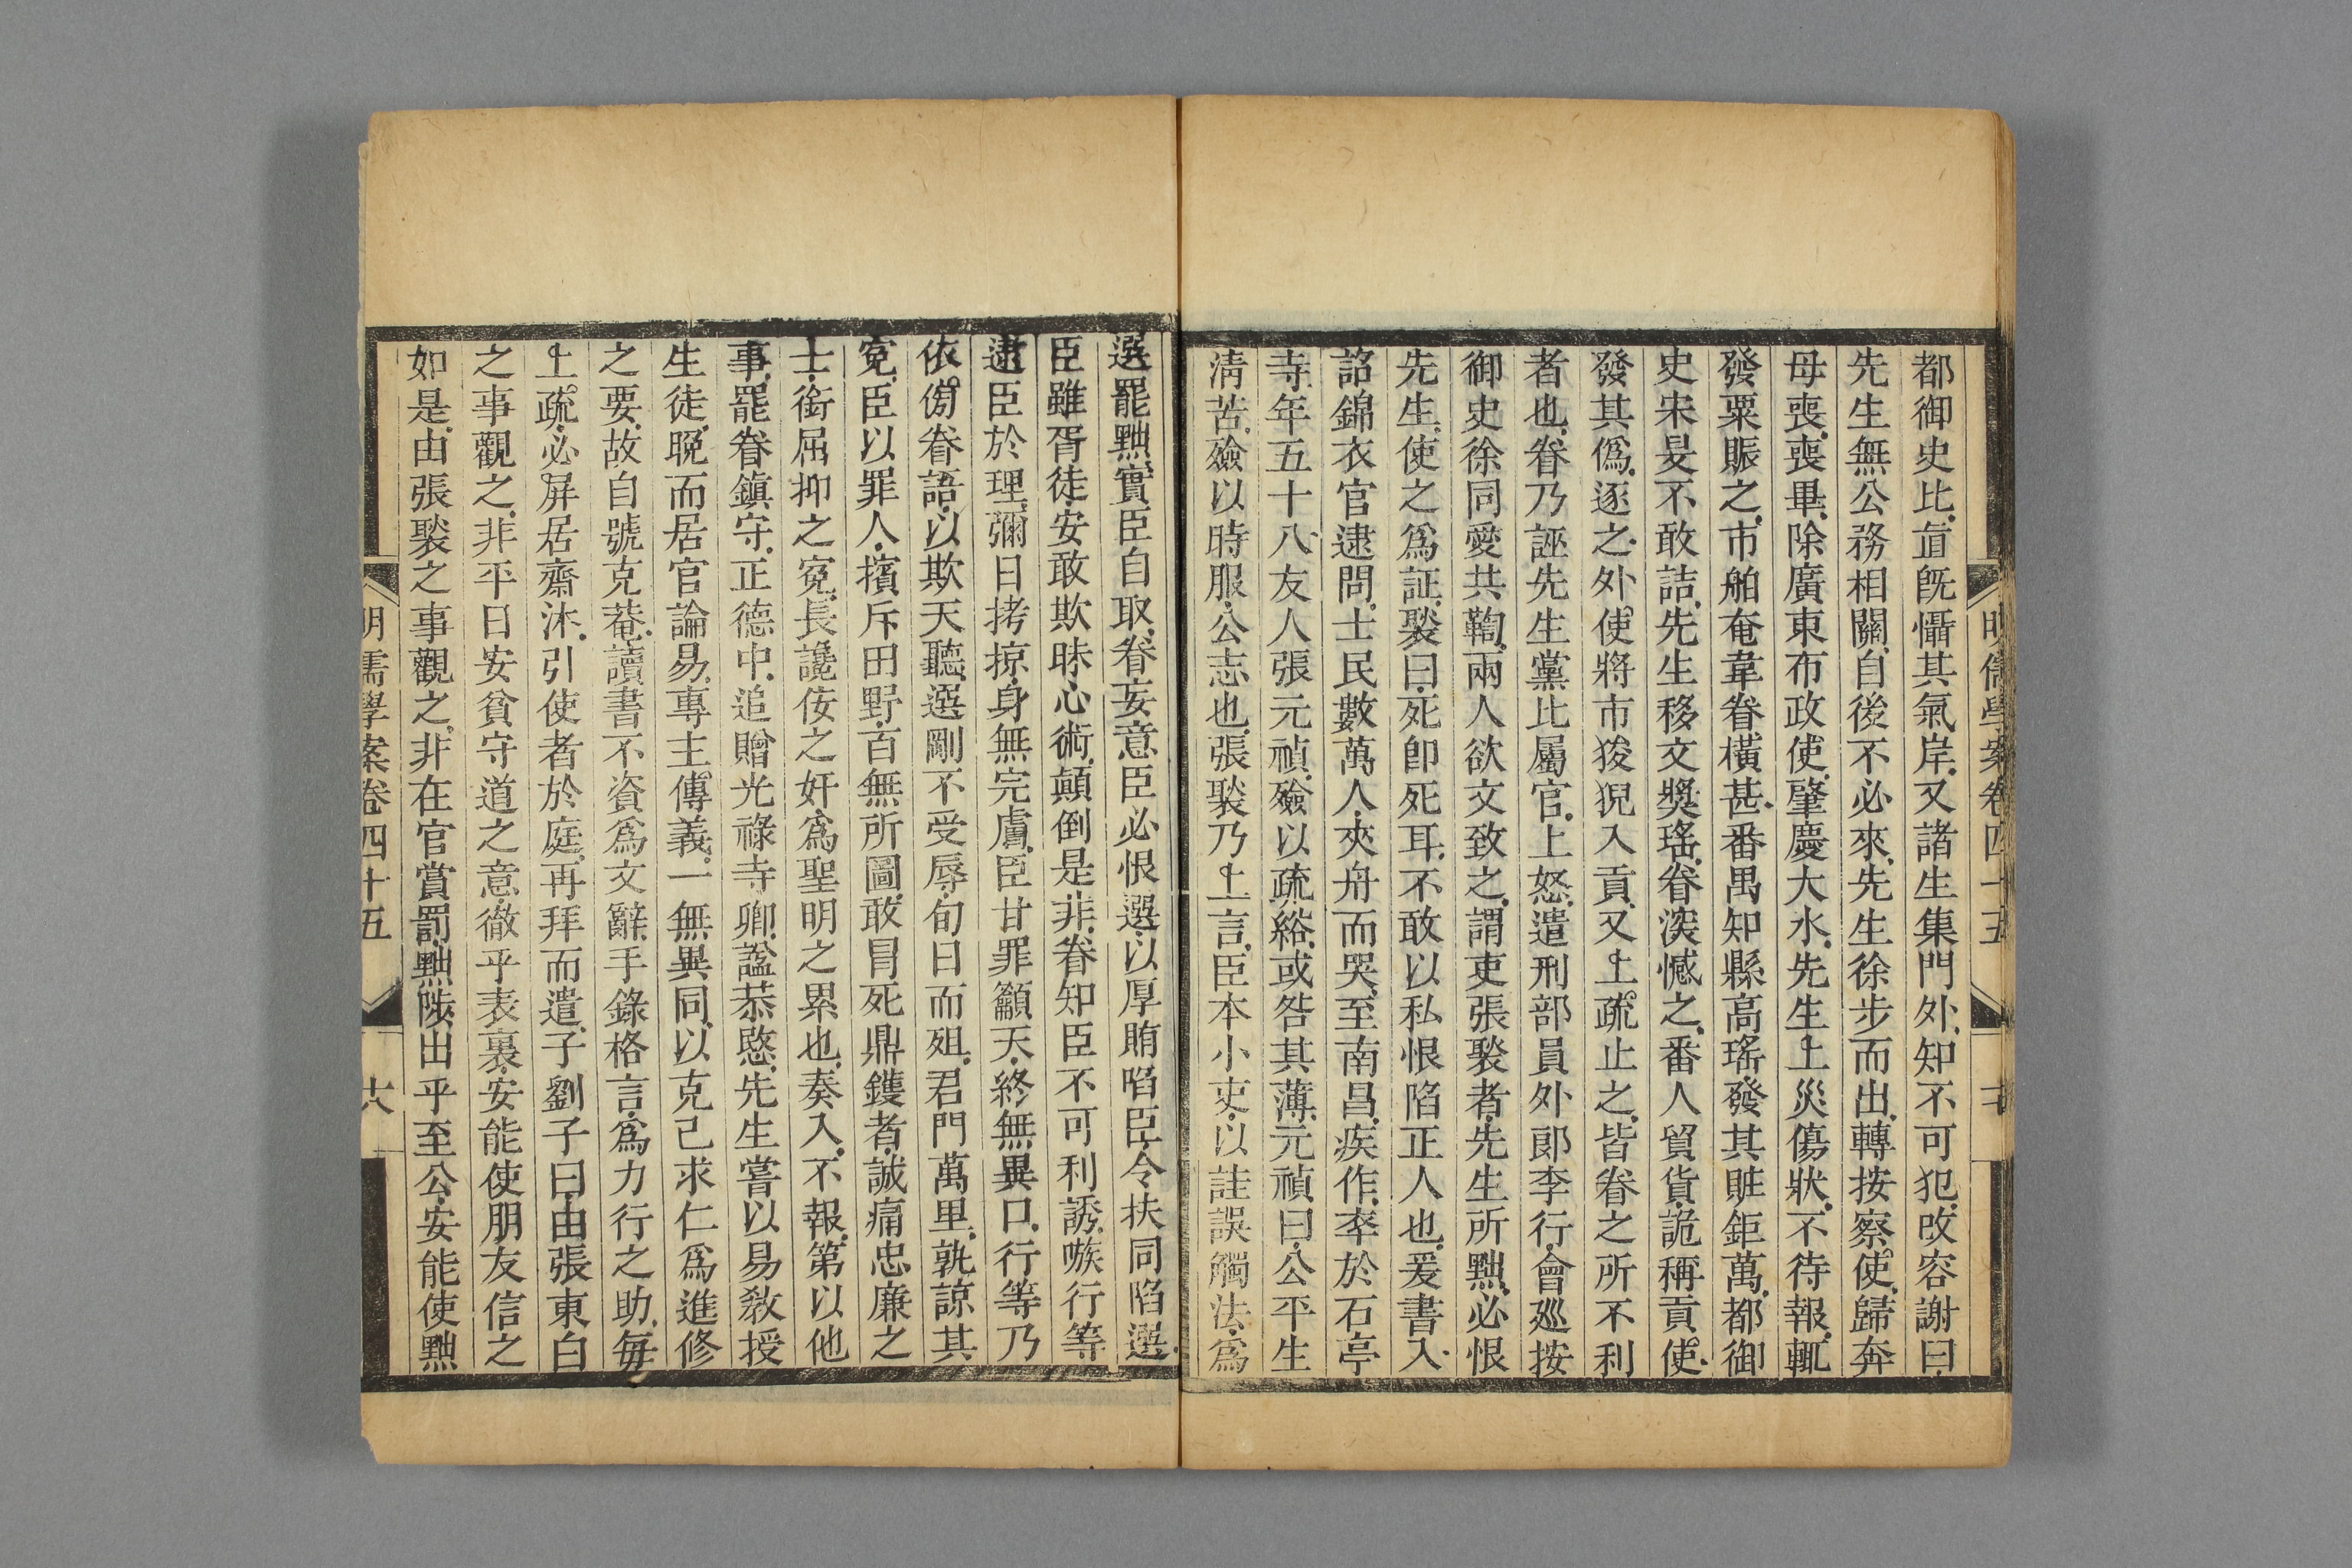 明儒學案卷四十五
都御史比直旣懾其氣岸又諸生集門外知不可犯改容謝曰
先生無公務相關自後不必來先生徐步而出轉按察使歸奔
母喪喪畢除廣東布政使肇慶大水先生上災傷狀不待報輒
發粟賑之市舶奄韋眷橫甚番禺知縣高瑤發其贓鉅萬都御
史宋旻不敢詰先生移文奬瑤眷深憾之番人貿貨詭稱貢使
發其僞逐之外使將市狻猊入貢又上疏止之皆眷之所不利
者也眷乃誣先生黨比屬官上怒遣刑部員外郎李行會廵按
御史徐同愛共鞫兩人欲文致之謂吏張褧者先生所黜必恨
先生使之爲証褧曰死卽死耳不敢以私恨陷正人也爰書入
詔錦衣官逮問士民數萬人夾舟而哭至南昌疾作卒於石亭
寺年五十八友人張元禎殮以疏綌或咎其薄元禎曰公平生
淸苦殮以時服公志也張褧乃上言臣本小吏以詿誤觸法爲
選罷黜實臣自取眷妄意臣必恨選以厚賄啗臣令扶同陷選
臣雖胥徒安敢欺昧心術顛倒是非眷知臣不可利誘嗾行等
逮臣於理彌日拷掠身無完膚臣甘罪籲天終無異口行等乃
依傍眷語以欺天聽選剛不受辱旬日而殂君門萬里孰諒其
冤臣以罪人擯斥田野百無所圖敢冒死鼎鑊者誠痛忠廉之
士銜屈抑之冤長讒侫之奸爲聖明之累也奏入不報第以他
事罷眷鎭守正德中追贈光祿寺卿諡恭愍先生嘗以易敎授
生徒晚而居官論易專主傳義一無異同以克己求仁爲進修
之要故自號克菴讀書不資爲文辭手錄格言爲力行之助每
上疏必屏居齋沐引使者於庭再拜而遣子劉子曰由張東白
之事觀之非平日安貧守道之意徹乎表裏安能使朋友信之
如是由張褧之事觀之非在官賞罰黜陟出乎至公安能使黜
明儒學案卷四十五
六